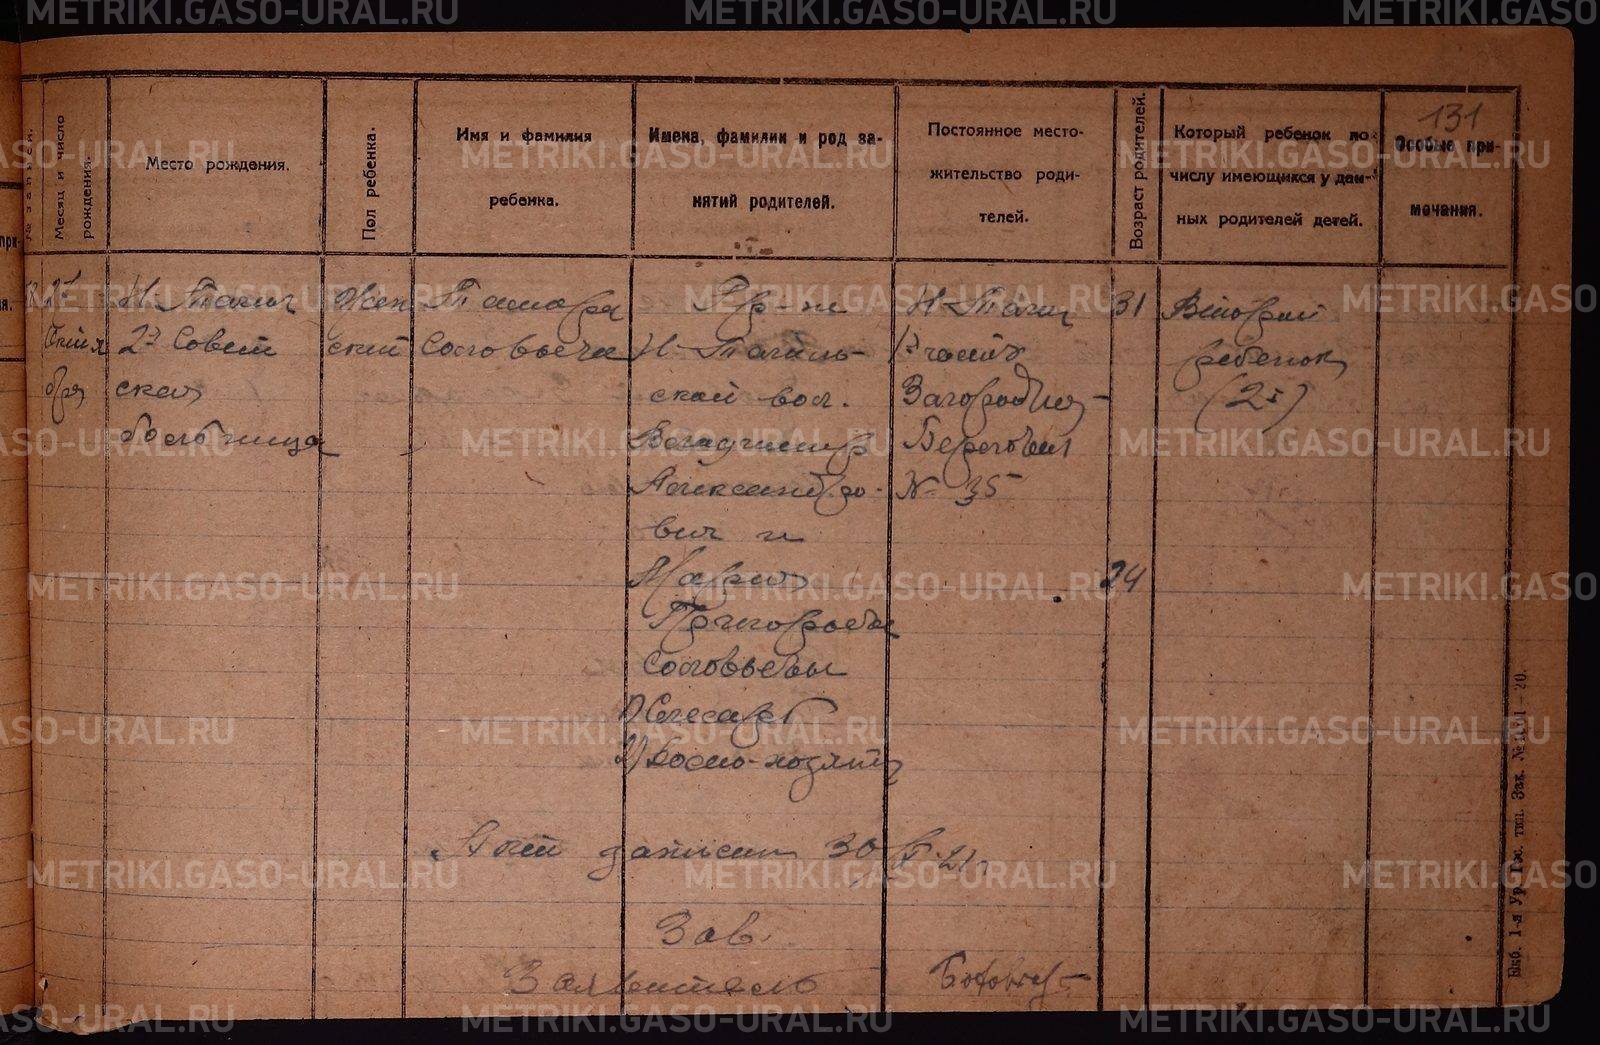 METRIKI.GASO-URAL.RU
131
№ записи.
Месяц и число рождения.
Место рождения.
Пол ребенка.
Имя и фамилия
ребенка.
Имена, фамилии и род за-
нятий родителей.
Постоянное место-
жительство роди-
телей.
Возраст родителей.
Который ребенок по
числу имеющихся у дан-
ных родителей детей.
Особые при-
мечания.
Н-Тагил
2я Совет
ская
больница
Жен
ский
Тамара
Соловьева
Гр-не
Н-Тагиль-
ской вол.
Владимир
Александро-
вич и
Мария
Григорьевна
Соловьевы
1) Слесарь
2) Домо-хозяйка
Н-Тагил
1я часть
Загородная
Береговая
№ 35
31
24
Второй
ребенок
(2й)
Акт записан 30
21
Зав.
Заявитель
Екб. 1-я Ур. Гос. тип. Зак. №
20.